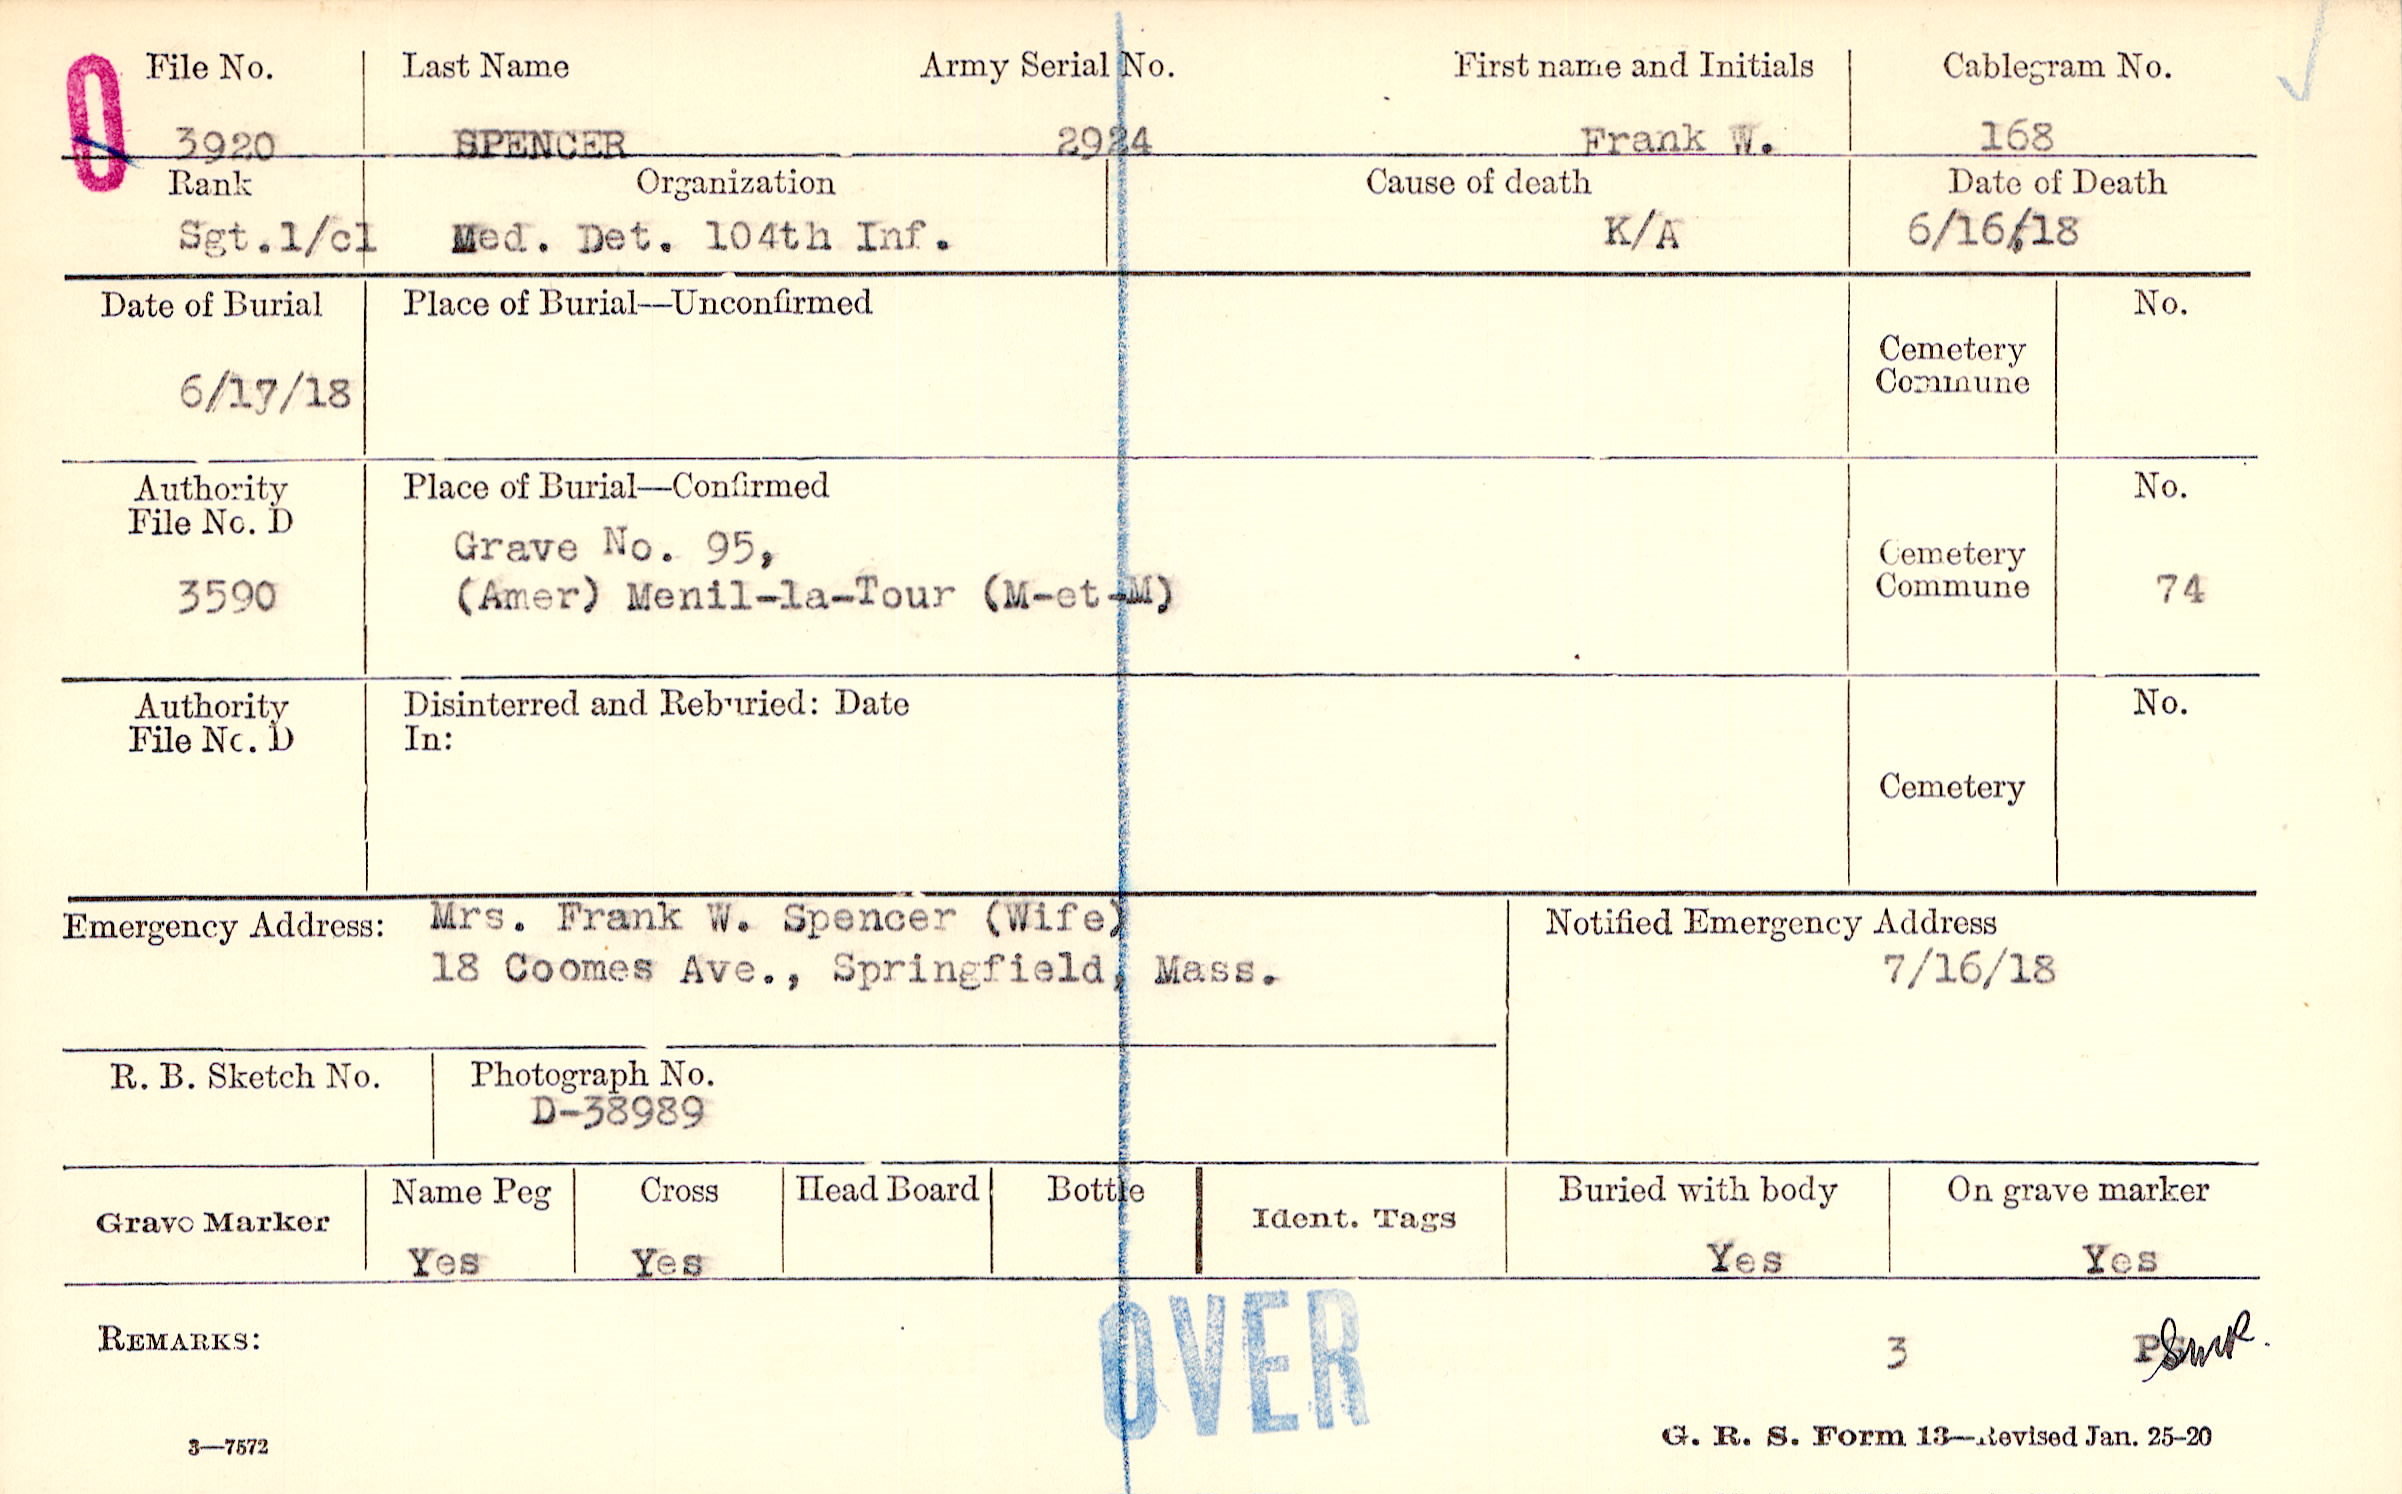 File No. Last Name Army Serial No. First name and Initials Cablegram No.
3920 SPENCER 2924 Frank W. 168
Rank Organization Cause of death Date of Death
Sgt.1/cl Med. Det. 104th Inf. K/A 6/16/18
Date of Burial Place of Burial—Unconfirmed No.
Cemetery
Commune
6/17/18
Authority Place of Burial—Confirmed No.
File No. D
Grave No. 95,
Cemetery
Commune
3590 (Amer) Menil-la-Tour (M-et-M) 74
Authority Disinterred and Reburied: Date No.
File No. D In:
Cemetery
Emergency Address: Mrs. Frank W. Spencer (Wife) Notified Emergency Address
18 Coomes Ave., Springfield, Mass. 7/16/18
R. B. Sketch No. Photograph No.
D-38989
Name Peg Cross Head Board Bottle Buried with body On grave marker
Grave Marker Ident. Tags
Yes Yes Yes Yes
OVER
REMARKS: 3
3—7572 G. R. S. Form 13—Revised Jan. 25-20